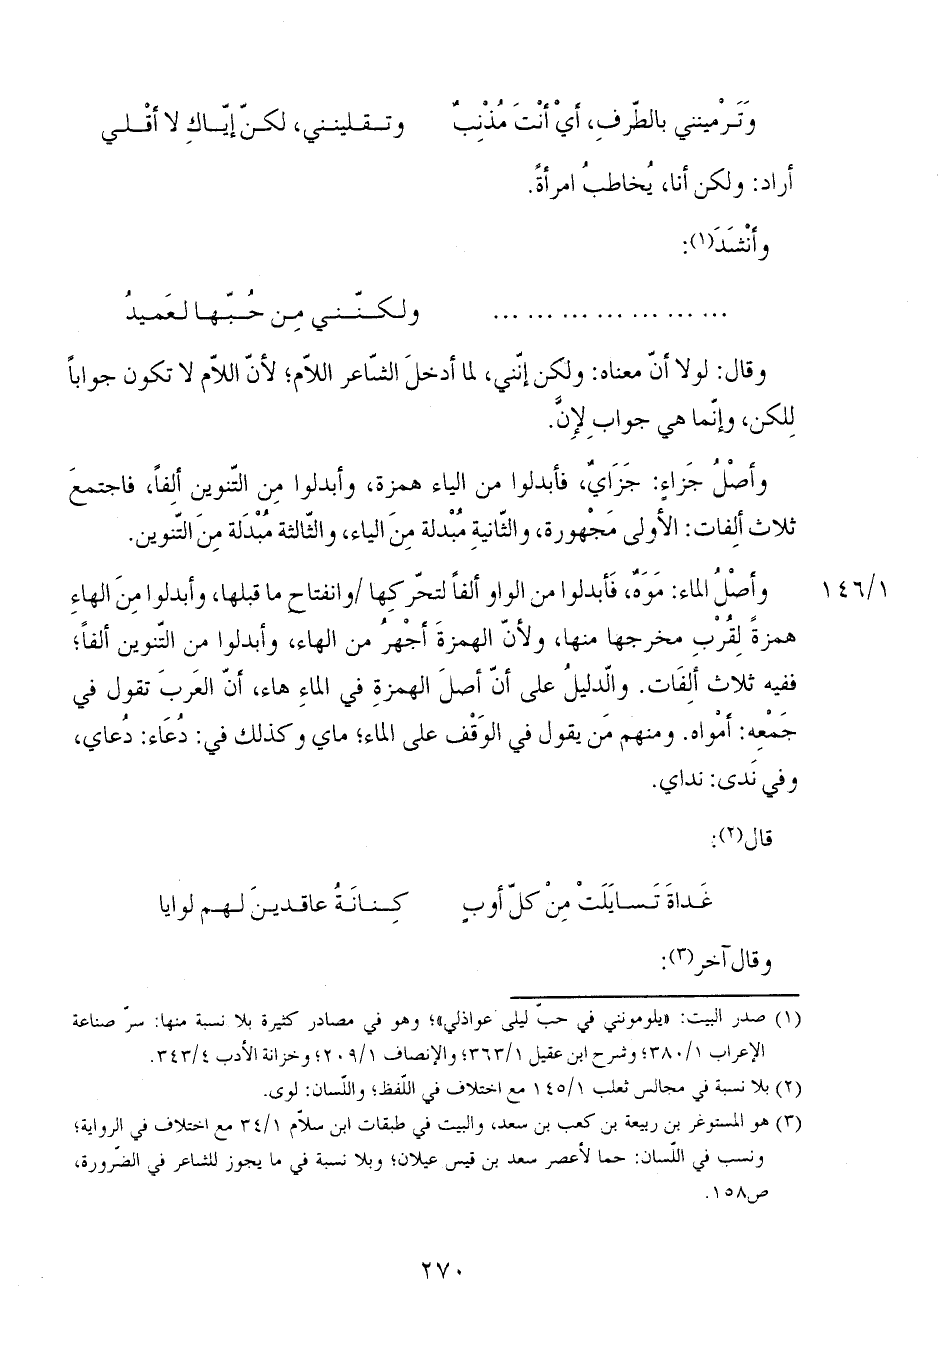 وَتَرْمينني بالطّرفِ، أيْ أنْتَ مُذْنِبٌ وتـقـلينـني، لكـنّ إيّـاكِ لا أقْـلـي
أراد: ولكن أنا، يُخاطبُ امرأةً.
وأنْشَدَ(١):
... ... ... ... ... ... ... ولـكـنّـنـي مِـن حُـبّـهـا لـعَـميدُ
وقال: لولا أنّ معناه: ولكن إنّني، لما أدخلَ الشّاعر اللاّم؛ لأنّ اللاّم لا تكون جواباً
لِلكن، وإنّما هي جواب لِإنَّ.
وأصْلُ جَزاءٍ: جَزَايٌ، فأبدلوا من الياء همزة، وأبدلوا مِن التّنوين ألِفاً، فاجتمعَ
ثلاث ألِفات: الأولى مَجْهورة، والثّانية مُبْدلة مِنَ الياء، والثّالثة مُبْدَلة مِنَ التّنوين.
١٤٦/١ وأصْلُ الماء: مَوَهٌ، فَأبدلوا من الواو ألفاً لتحرّكِها /وانفتاحِ ما قبلها، وأبدلوا مِنَ الهاءِ
همزةً لِقُرْبِ مخرجها منها، ولأنّ الهمزةَ أجْهرُ من الهاء، وأبدلوا من التّنوين ألفاً؛
ففيه ثلاث ألِفَات. والّدليلُ على أنّ أصلَ الهمزةِ في الماءِ هاء، أنّ العَربَ تقول في
جَمْعِه: أمْواه. ومنهم مَن يقول في الوَقْف على الماء؛ ماي وكذلك في: دُعَاء: دُعاي،
وفي نَدى: نداي.
قال(٢):
غَـداةَ تَـسـايَلَتْ مِنْ كلّ أوبٍ كِـنـانَـةُ عاقـدينَ لـهـم لوايا
وقال آخر(٣):
(١) صدر البيت: «يلومونني في حبّ ليلى عواذلي»؛ وهو في مصادر كثيرة بلا نسبة منها: سرّ صناعة
الإعراب ٣٨٠/١؛ وشرح ابن عقيل ٣٦٣/١؛ والإنصاف ٢٠٩/١؛ وخزانة الأدب ٣٤٣/٤.
(٢) بلا نسبة في مجالس ثعلب ١٤٥/١ مع اختلاف في اللّفظ؛ واللّسان: لوى.
(٣) هو المستوغر بن ربيعة بن كعب بن سعد، والبيت في طبقات ابن سلاّم ٣٤/١ مع اختلاف في الرواية؛
ونسب في اللّسان: حما لأعصر سعد بن قيس عيلان؛ وبلا نسبة في ما يجوز للشاعر في الضّرورة،
ص١٥٨.
٢٧٠